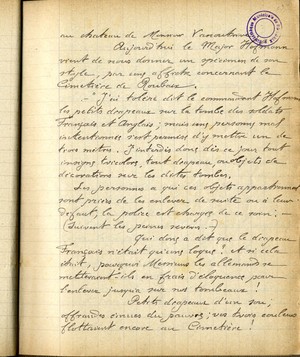 au chateau de Monsieur
Aujourd'hui le Major Hofmann
vient de nous donner un spécimen de son
style, par une affiche concernant le
Cimetière de Roubaix
- "J'ai toléré dit le commandant Hofmann
les petits drapeaux sur la tombe des soldats
Français et Anglais, mais une personne mal
intentionnée s'est permise d'y mettre un de
trois mètres. J'interdis donc dès ce jour tout
insigne tricolore, tout drapeau ou objets de
décorations sur les dites tombes.
Les personnes à qui ces objets appartiennent
sont priées de les enlever de suite ou à leur
défaut, la police est chargée de ce soin, -
(Suivent les peines
Qui donc a dit que le drapeau
Français n'était qu'une loque! et si cela
était, pourquoi Messieurs les allemands se
mettraient-ils en frais d'éloquence pour
l'enlever jusque sur nos tombeaux!
Petits drapeaux d'un sou,
offrandes émues du pauvre, vos trois couleurs
flottaient encore au Cimetière!